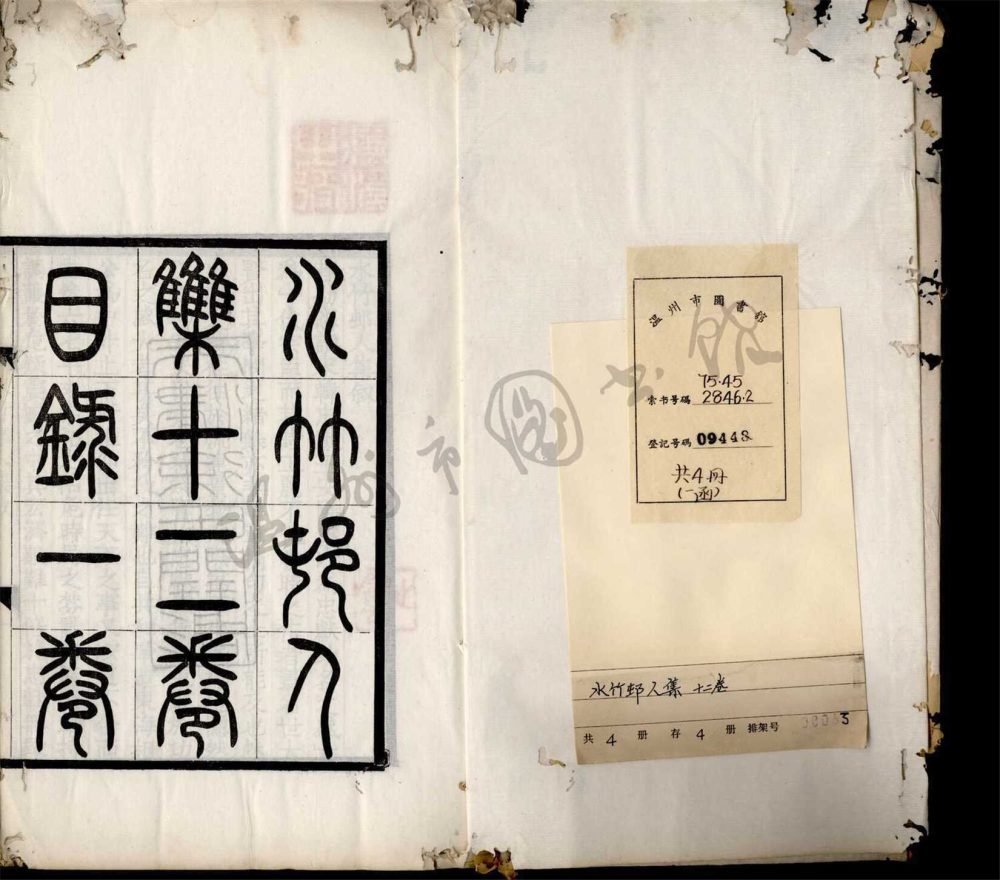 水竹邨人
集十二卷
目錄一卷
溫州市圖書館
索书号碼 75.45
2846.2
登記号碼 09448
共4册
(一函)
水竹邨人集 十二卷
共 4 册 存 4 册 排架号
温州市图书馆